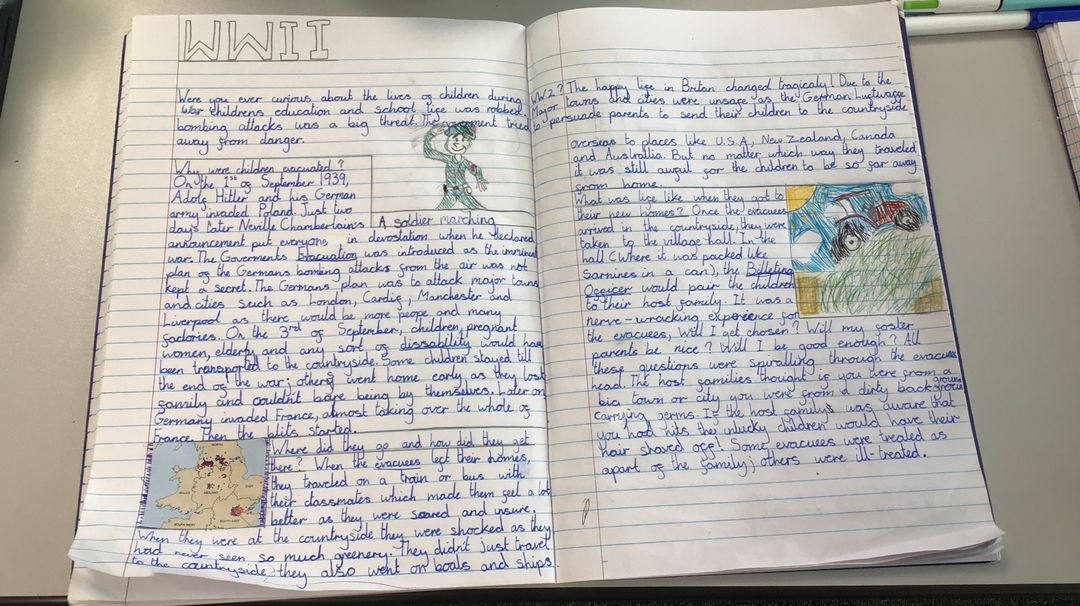 WWII
Were you ever curious about the lives of children during WW2? The happy life in Britan changed tragicaly! Due to the
War childrens education and school life was robbed. Major towns and cities were unsafe as the German Luftwaffe
bombing attacks was a big threat. The goverment tried to persuade parents to send their children to the countryside
away from danger.
Why were children evacuated?
On the 1st of September 1939,
Adolf Hitler and his German
army invaded Poland. Just two
days later Neville Chamberlains
A soldier marching
announcement put everyone in devostation when he declared
war. The Goverments Evacuation was introduced as the imminent
plan of the Germans bombing attacks from the air was not
kept a secret. The Germans plan was to attack major towns
and cities such as London, Cardif, Manchester and
Liverpool as there would be more peope and many
factories. On the 3rd of September, children, pregnant
women, elderty and any sort of dissability would have
been transported to the countryside. Some children stayed till
the end of the war; others went home early as they lost
family and couldn't bare being by themselves. Later on
Germany invaded France, almost taking over the whole of
France. Then the blits started.
Where did they go and how did they get
there? When the evacuees left their homes,
they traveled on a train or bus with
their classmates which made them feel a lot
better as they were scared and unsure.
When they were at the countryside they were shocked as they
had never seen so much greenery. They didn't just travel
to the countryside, they also went on boats and ships
overseas to places like U.S.A, New Zealand, Canada
and Australlia. But no matter which way they traveled
it was still awful for the children to be so far away
from home.
What was life like when they got to
their new homes? Once the evacuees
arrived in the countryside, they were
taken to the village hall. In the
hall (Where it was packed like
Sarnines in a can), the Billeting
Officer would pair the children
to their host family. It was a
nerve-wracking experience for
the evacuees, Will I get chosen? Will my foster
parents be nice? Will I be good enough? All
these questions were spiralling through the evacuees
head. The host families thought if you were from a
big town or city you were from a dirty background
carrying germs. If the host familys was aware that
you had nits the unlucky children would have their
hair shaved off! Some evacuees were treated as
apart of the family; others were ill-treated.